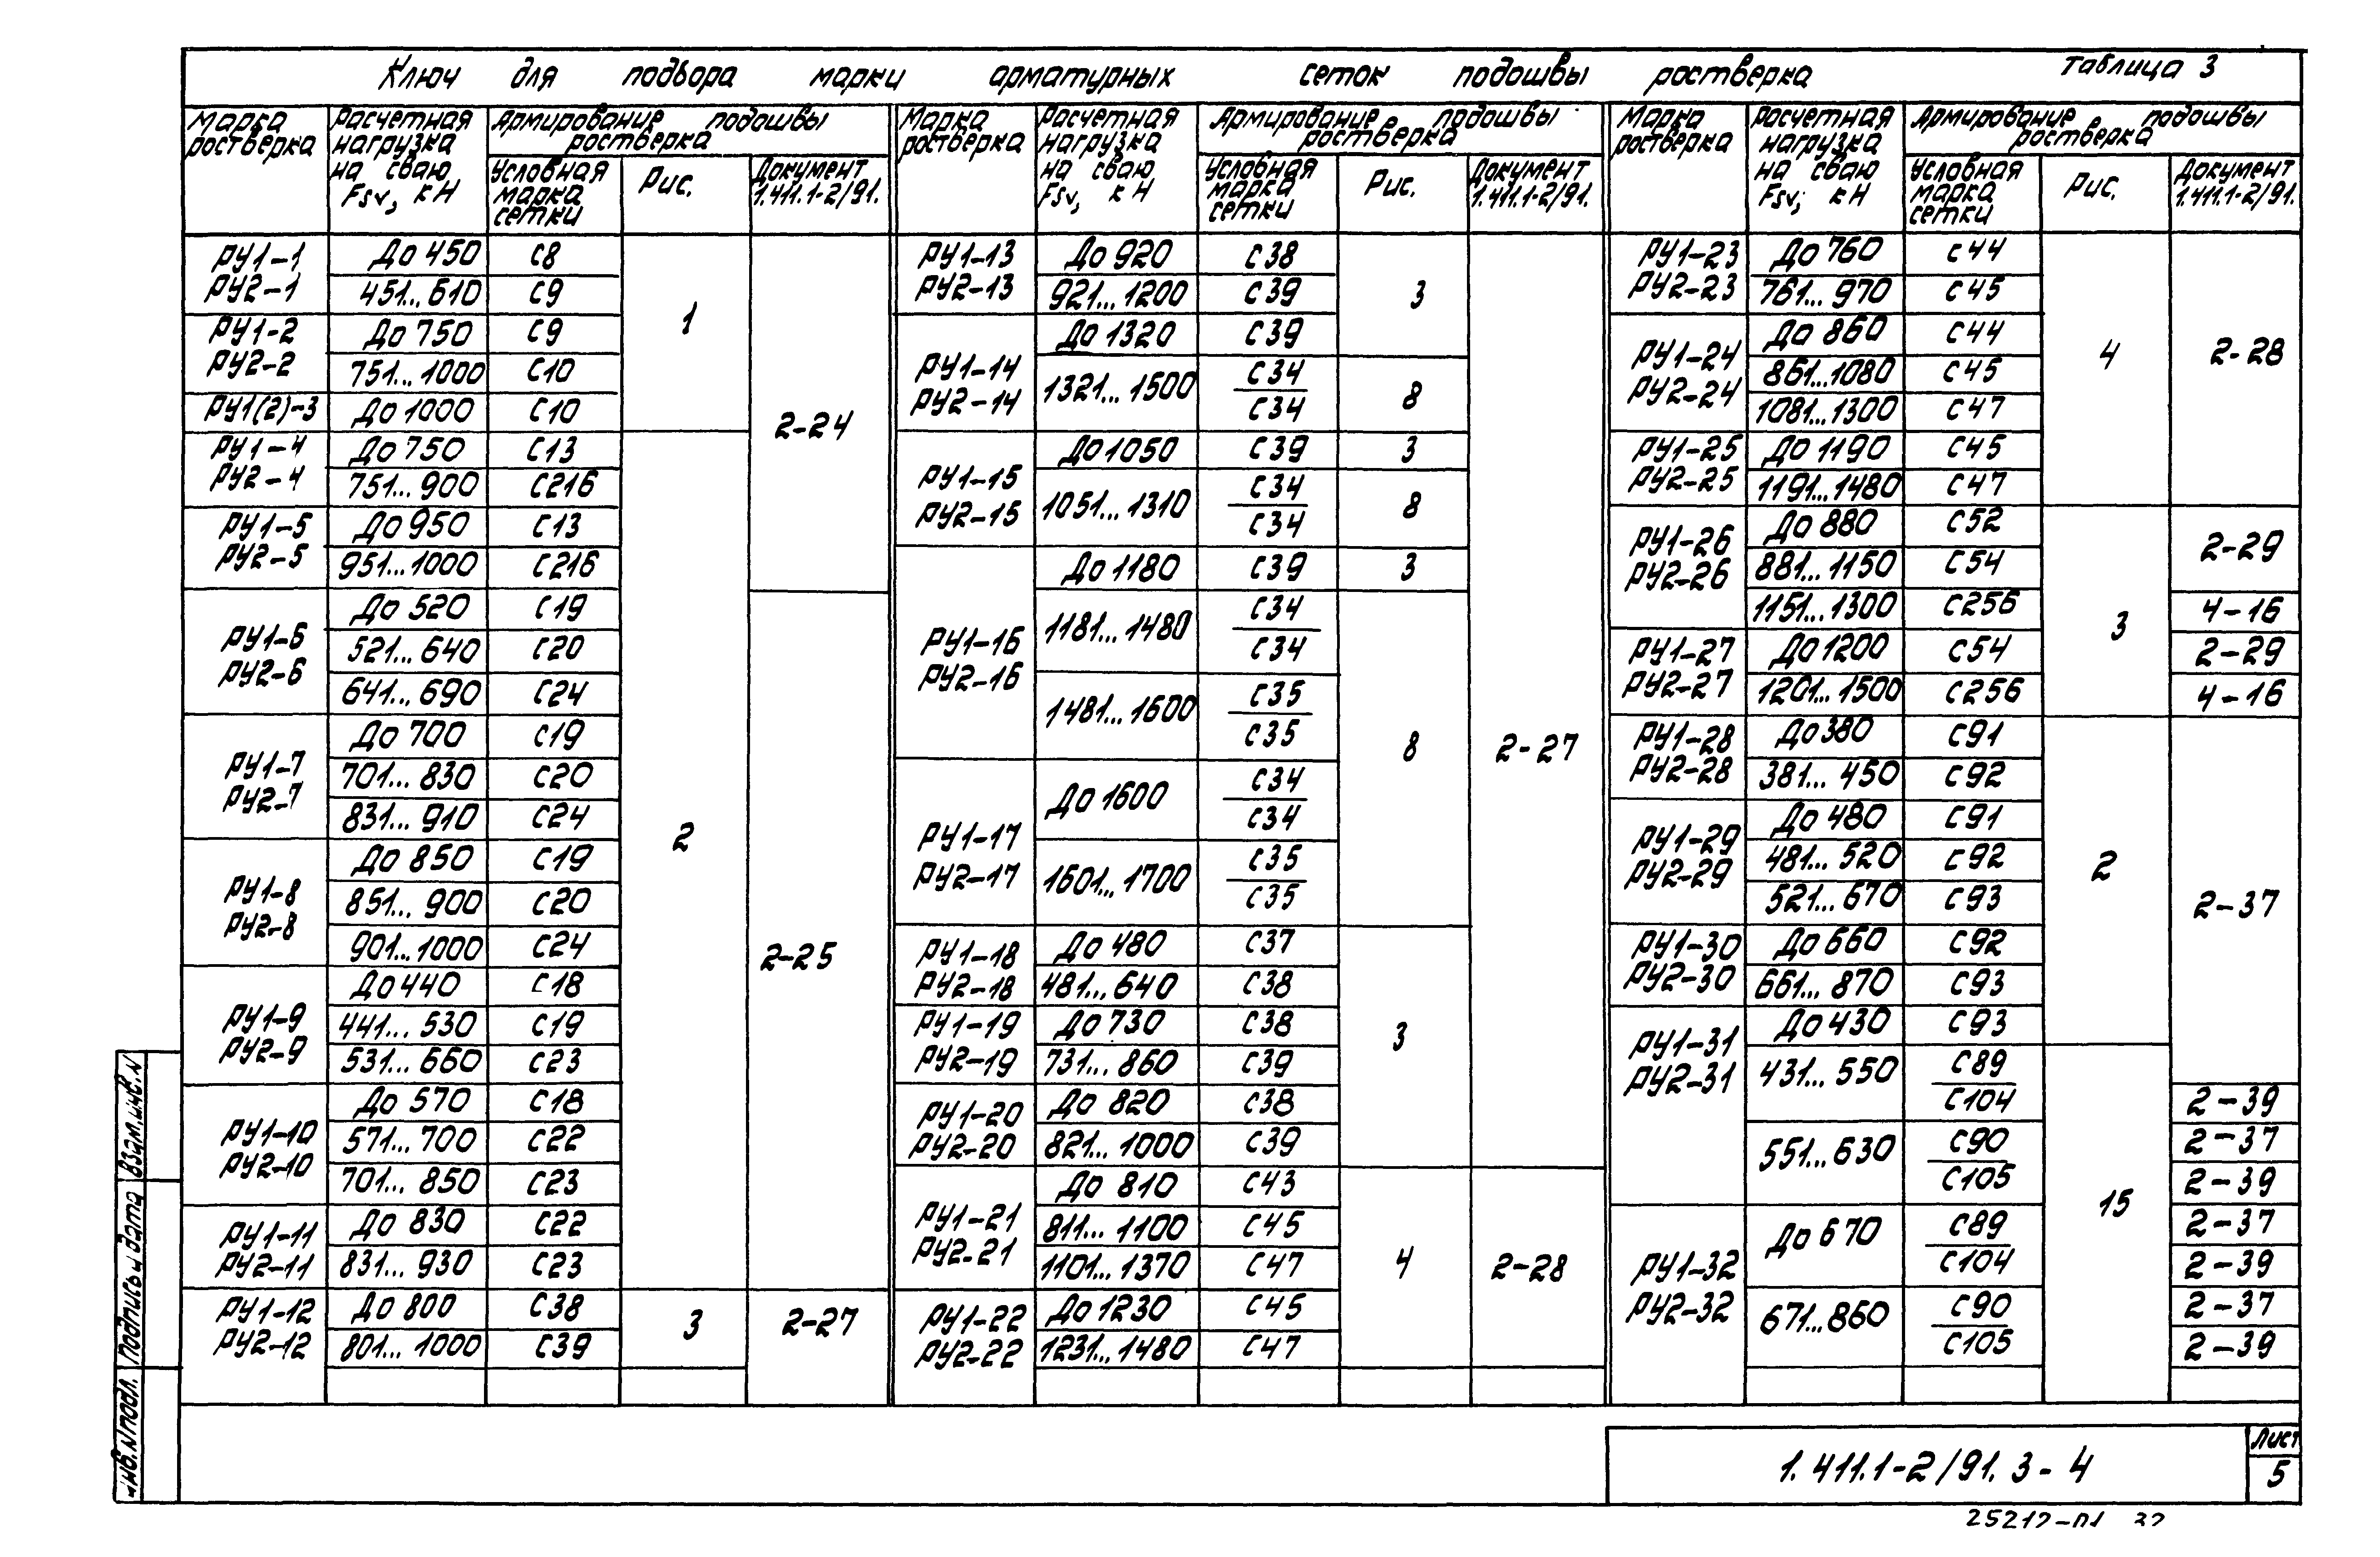 Таблица 3
Ключ для подбора марки арматурных сеток подошвы ростверка
Марка ростверка
Расчетная нагрузка на сваю Fsv, кН
Армирование подошвы ростверка
Условная марка сетки
Рис.
Документ 1.411.1-2/91.
РУ1-1 РУ2-1
До 450 С8
451...610 С9
РУ1-2 РУ2-2
До 750 С9
751...1000 С10
РУ1(2)-3 До 1000 С10
1
2-24
РУ1-4 РУ2-4
До 750 С13
751...900 С216
РУ1-5 РУ2-5
До 950 С13
951...1000 С216
РУ1-6 РУ2-6
До 520 С19
521...640 С20
641...690 С24
РУ1-7 РУ2-7
До 700 С19
701...830 С20
831...910 С24
2
РУ1-8 РУ2-8
До 850 С19
851...900 С20
901...1000 С24
2-25
РУ1-9 РУ2-9
До 440 С18
441...530 С19
531...660 С23
РУ1-10 РУ2-10
До 570 С18
571...700 С22
701...850 С23
РУ1-11 РУ2-11
До 830 С22
831...930 С23
РУ1-12 РУ2-12
До 800 С38
801...1000 С39
3 2-27
Марка ростверка
Расчетная нагрузка на сваю Fsv, кН
Армирование подошвы ростверка
Условная марка сетки
Рис.
Документ 1.411.1-2/91.
РУ1-13 РУ2-13
До 920 С38
921...1200 С39
3
РУ1-14 РУ2-14
До 1320 С39
1321...1500 С34 С34 8
РУ1-15 РУ2-15
До 1050 С39 3
1051...1310 С34 С34 8
РУ1-16 РУ2-16
До 1180 С39 3
1181...1480 С34 С34
1481...1600 С35 С35
8 2-27
РУ1-17 РУ2-17
До 1600 С34 С34
1601...1700 С35 С35
РУ1-18 РУ2-18
До 480 С37
481...640 С38
РУ1-19 РУ2-19
До 730 С38
731...860 С39
3
РУ1-20 РУ2-20
До 820 С38
821...1000 С39
РУ1-21 РУ2-21
До 810 С43
811...1100 С45
1101...1370 С47
4 2-28
РУ1-22 РУ2-22
До 1230 С45
1231...1480 С47
Марка ростверка
Расчетная нагрузка на сваю Fsv, кН
Армирование подошвы ростверка
Условная марка сетки
Рис.
Документ 1.411.1-2/91.
РУ1-23 РУ2-23
До 760 С44
761...970 С45
РУ1-24 РУ2-24
До 860 С44
861...1080 С45
1081...1300 С47
4 2-28
РУ1-25 РУ2-25
До 1190 С45
1191...1480 С47
РУ1-26 РУ2-26
До 880 С52
881...1150 С54
2-29
1151...1300 С256 4-16
3
РУ1-27 РУ2-27
До 1200 С54 2-29
1201...1500 С256 4-16
РУ1-28 РУ2-28
До 380 С91
381...450 С92
РУ1-29 РУ2-29
До 480 С91
481...520 С92
521...670 С93
2 2-37
РУ1-30 РУ2-30
До 660 С92
661...870 С93
РУ1-31 РУ2-31
До 430 С93
431...550 С89
С104 2-39
551...630 С90 2-37
С105 2-39
15
РУ1-32 РУ2-32
До 670 С89 2-37
С104 2-39
671...860 С90 2-37
С105 2-39
Взам.инв.N
Подпись и дата
Инв.N подл.
1.411.1-2/91. 3-4
Лист
5
25212-01 32